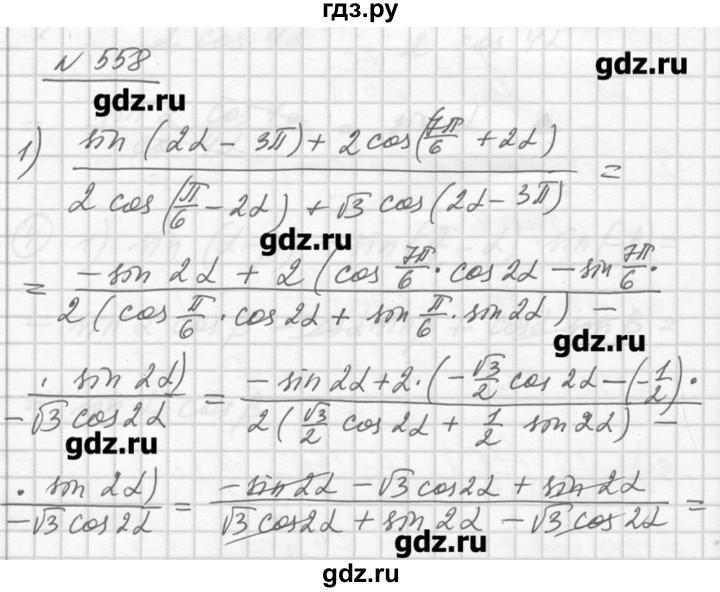 гдз.ру
№ 558
gdz.ru
gdz.ru
1) (sin (2α − 3π) + 2 cos(7π/6 + 2α)) / (2 cos(π/6 − 2α) + √3 cos(2α − 3π)) =
gdz.ru
= (−sin 2α + 2 (cos 7π/6 · cos 2α − sin 7π/6 ·) / (2 (cos π/6 · cos 2α + sin π/6 · sin 2α) −)
gdz.ru
(· sin 2α)) / (−√3 cos 2α) = (−sin 2α + 2 · (−√3/2 cos 2α − (−1/2) ·) / (2 (√3/2 cos 2α + 1/2 sin 2α) −)
gdz.ru
(· sin 2α)) / (−√3 cos 2α) = (−sin 2α − √3 cos 2α + sin 2α) / (√3 cos 2α + sin 2α − √3 cos 2α) =
gdz.ru
gdz.ru